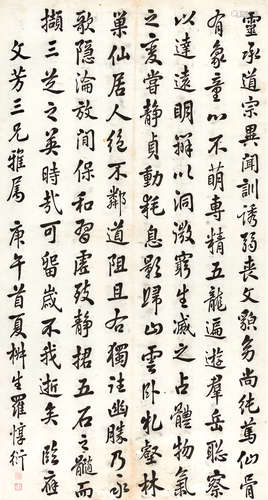 靈承道宗異聞訓誘弱喪文貌尚純萬仙骨
有象童心不萌專精五龍遍遊羣岳聪察
以達遠明辯以洞微窮生滅之占體物氣
之變嘗静貞動耗息影歸山雲卧壑林
巢仙居人絕不鄰道阻且右獨詠幽勝乃永
歌隱淪放閒保和習虛致静捃五石之髓而
擷三芝之英時哉可留歲不我逝矣臨
文芳三兄雅屬 庚午首夏椒生羅惇衍